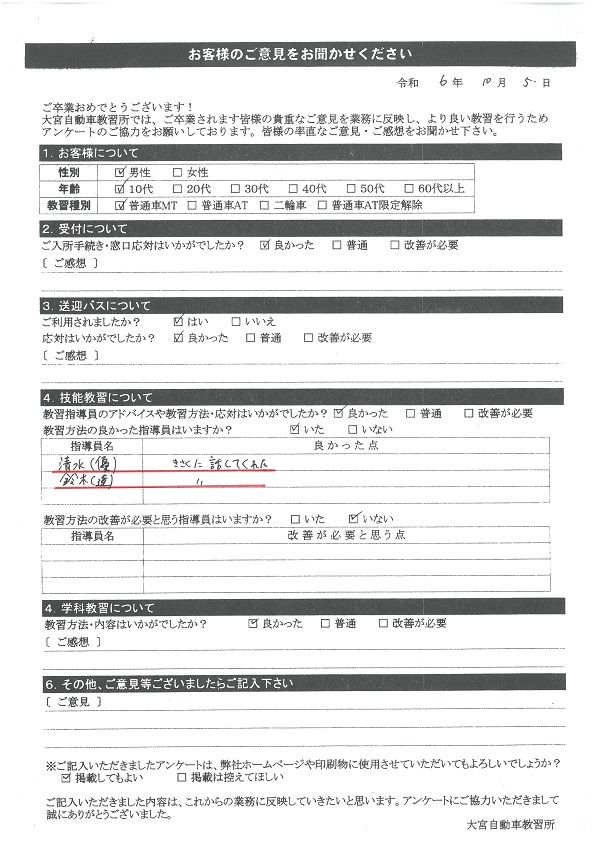 お客様のご意見をお聞かせください
令和 6年 10月 5日
ご卒業おめでとうございます！
大宮自動車教習所では、ご卒業されます皆様の貴重なご意見を業務に反映し、より良い教習を行うため
アンケートのご協力をお願いしております。皆様の率直なご意見・ご感想をお聞かせ下さい。
1. お客様について
性別 ☑男性 □女性
年齢 ☑10代 □20代 □30代 □40代 □50代 □60代以上
教習種別 ☑普通車MT □普通車AT □二輪車 □普通車AT限定解除
2. 受付について
ご入所手続き・窓口応対はいかがでしたか？ ☑良かった □普通 □改善が必要
〔 ご感想 〕
3. 送迎バスについて
ご利用されましたか？ ☑はい □いいえ
応対はいかがでしたか？ ☑良かった □普通 □改善が必要
〔 ご感想 〕
4. 技能教習について
教習指導員のアドバイスや教習方法・応対はいかがでしたか？ ☑良かった □普通 □改善が必要
教習方法の良かった指導員はいますか？ ☑いた □いない
指導員名 良かった点
清水(優) きさくに話してくれた
鈴木(達) 〃
教習方法の改善が必要と思う指導員はいますか？ □いた ☑いない
指導員名 改善が必要と思う点
4. 学科教習について
教習方法・内容はいかがでしたか？ ☑良かった □普通 □改善が必要
〔 ご感想 〕
6. その他、ご意見等ございましたらご記入下さい
〔 ご意見 〕
※ご記入いただきましたアンケートは、弊社ホームページや印刷物に使用させていただいてもよろしいでしょうか？
☑掲載してもよい □掲載は控えてほしい
ご記入いただきました内容は、これからの業務に反映していきたいと思います。アンケートにご協力いただきまして
誠にありがとうございました。
大宮自動車教習所